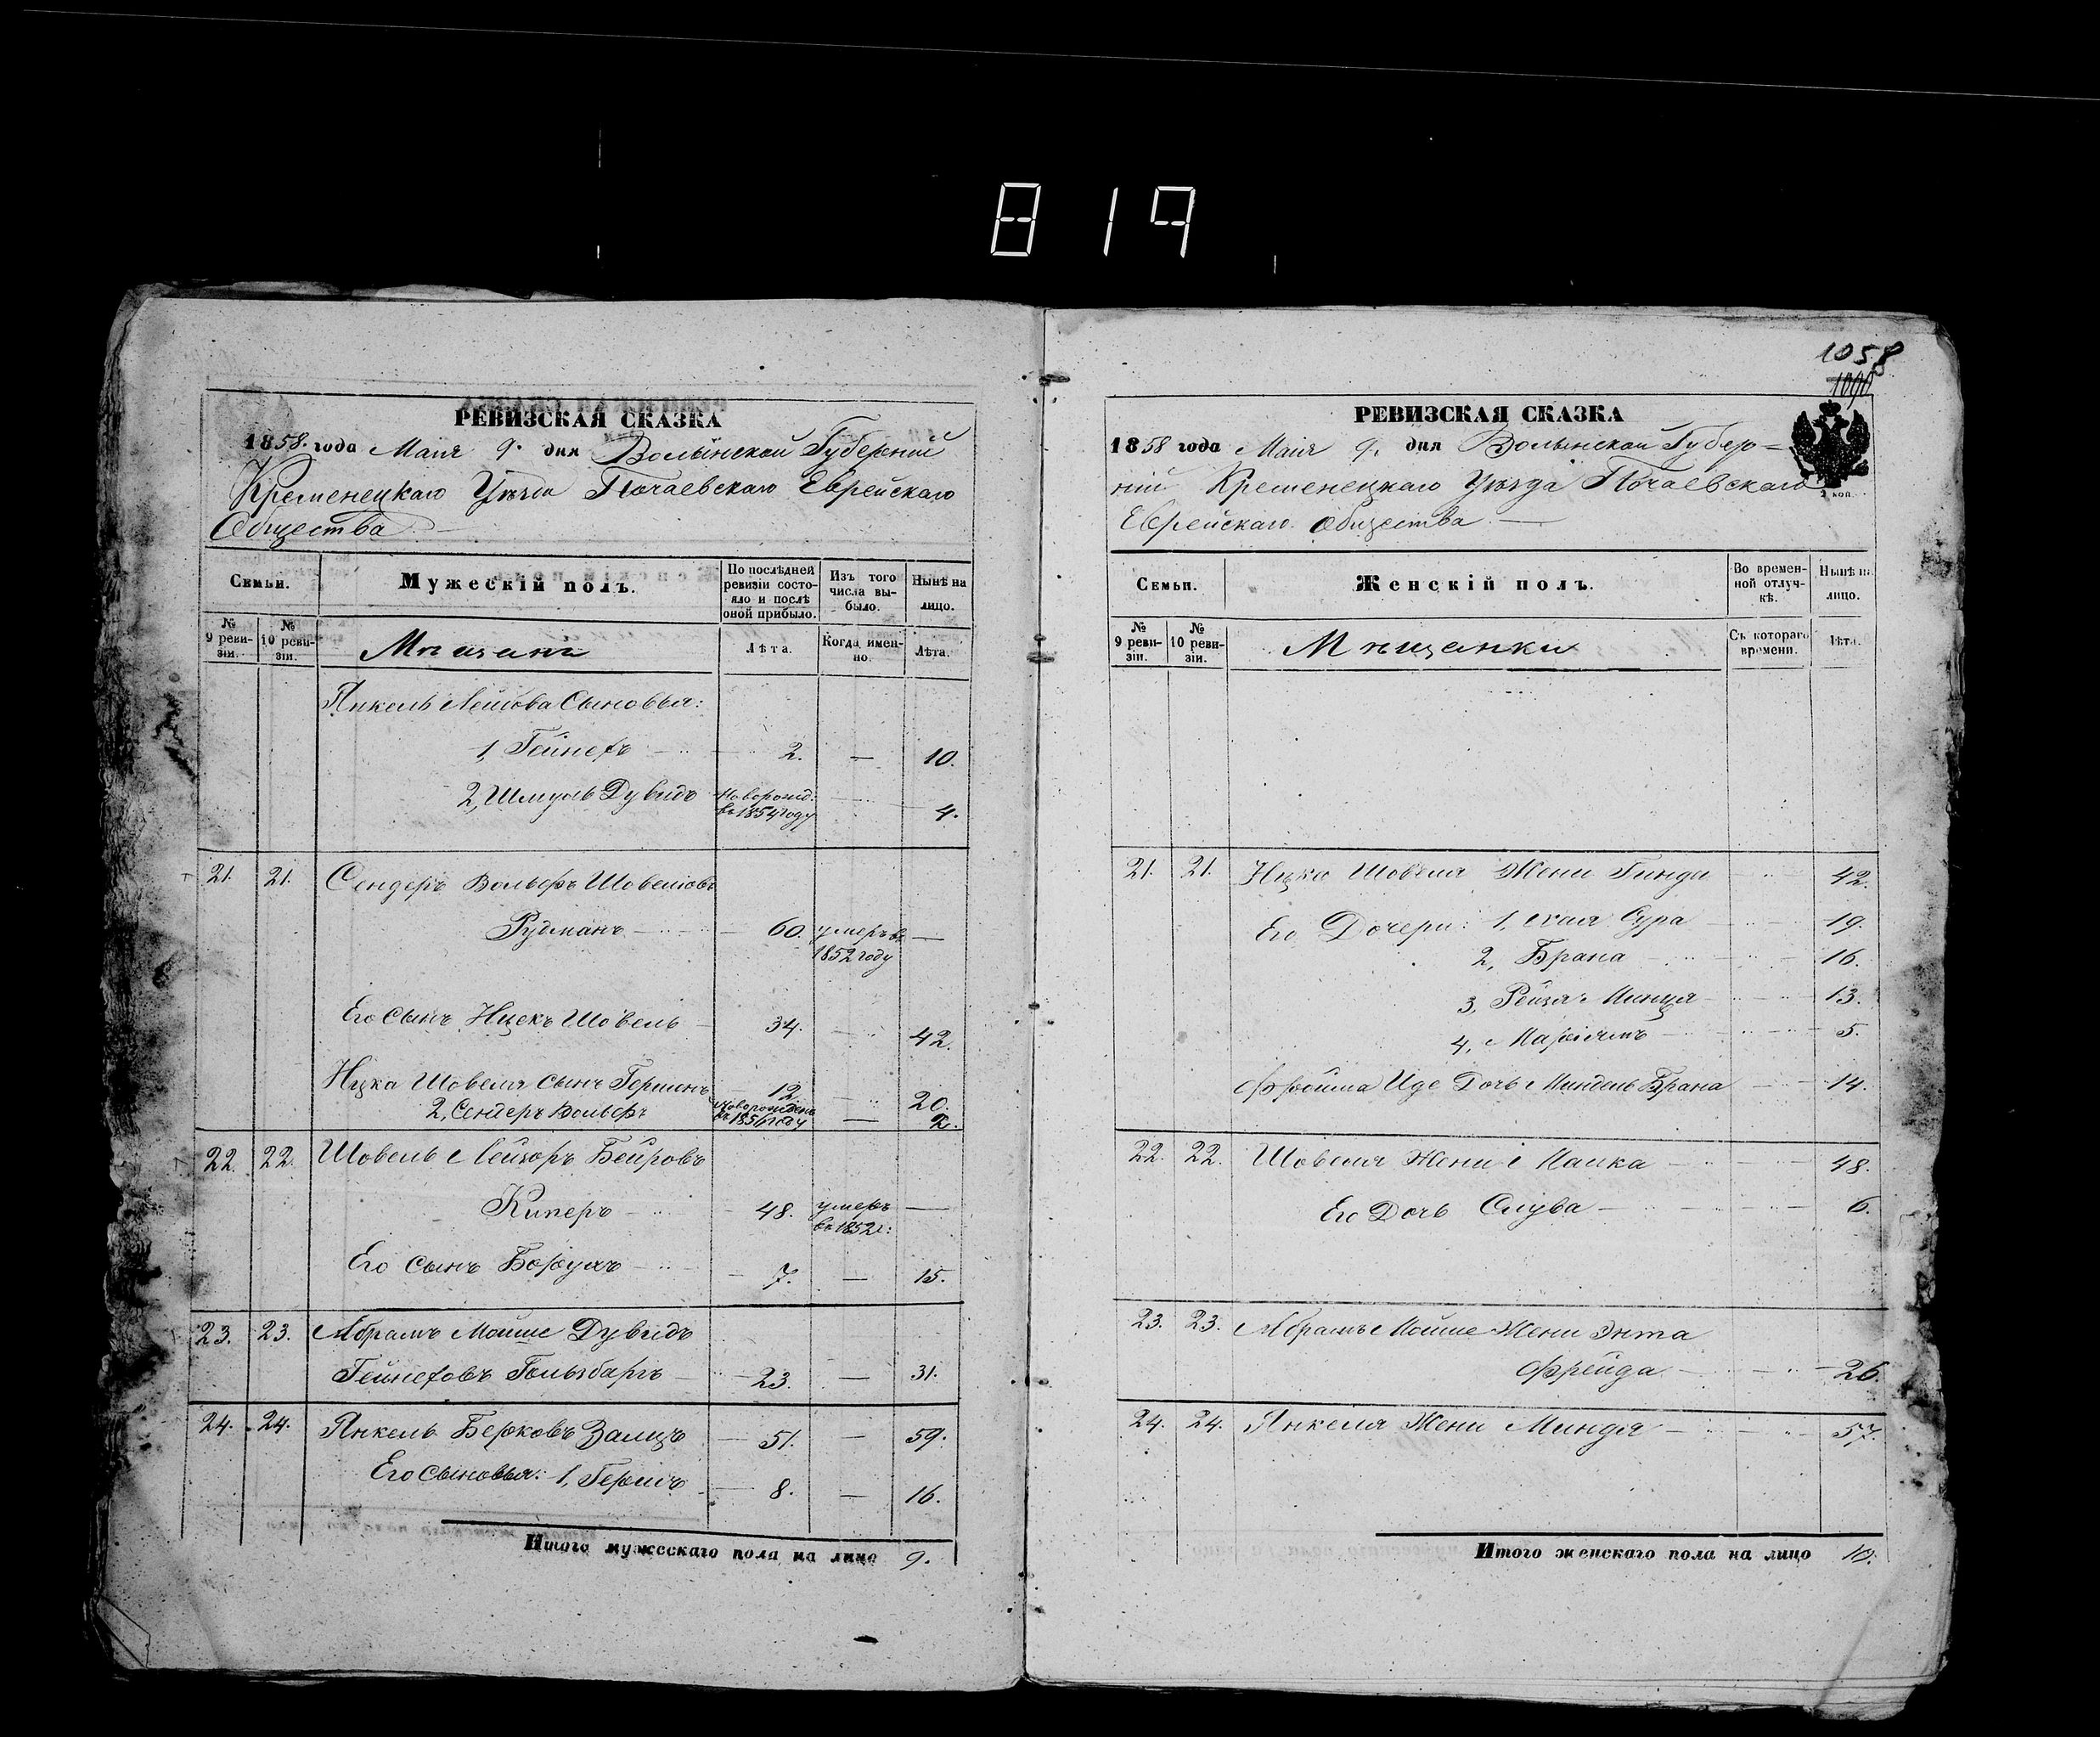 819
1058
1090
РЕВИЗСКАЯ СКАЗКА
1858. года Маія 9. дня Волынской Губерніи
Кременецкаго Уѣзда Почаевскаго Еврейскаго
Общества
Семьи.
Мужескій полъ.
По послѣдней ревизіи состояло и послѣ оной прибыло.
Изъ того числа выбыло.
Нынѣ на лицо.
№ 9 ревизіи.
№ 10 ревизіи.
Мѣщане
Лѣта.
Когда именно.
Лѣта.
Янкель Сыновья:
1, Гейнехъ 2. — 10.
2, Шмуль Дувидъ Новорожд: въ 1854 году 4.
21. 21. Сендеръ Вольфъ Шовелювъ
Рудманъ 60. умеръ въ 1852 году —
Его Сынъ Ицекъ Шовель 34. 42.
Ицка Шовеля сынъ Гершонъ 12. 20.
2, Сендеръ Вольфъ Новорожденъ — 2.
22. 22. Шовель Лейзоръ Бейровъ
Киперъ 48. умеръ въ 1852 г: —
Его Сынъ Борухъ 7. — 15.
23. 23. Абрамъ Мойше Дувидъ
Гейнеховъ Гользбаргъ 23. — 31.
24. 24. Янкель Берковъ Залицъ 51. — 59.
Его Сыновья: 1, Гершъ 8. — 16.
Итого мужескаго пола на лицо 9.
РЕВИЗСКАЯ СКАЗКА
1858 года Маія 9. дня Волынской Губер-
ніи Кременецкаго Уѣзда Почаевскаго
Еврейскаго Общества
2 коп.
Семьи.
Женскій полъ.
Во временной отлучкѣ.
Нынѣ на лицо.
№ 9 ревизіи.
№ 10 ревизіи.
Мѣщанки
Съ котораго времени.
Лѣта.
21. 21. Ицка Шовеля Жена Гинда 42.
Его Дочери: 1, Хая Сура 19.
2, Брана 16.
3, Рейзя 13.
4, Маріямъ 5.
Фройма Иде Дочь Миндель Брана 14.
22. 22. Шовеля Жена Малка 48.
Его Дочь Слува 6.
23. 23. Абрамъ Мойше Жена Энта
Фрейда 26.
24. 24. Янкеля Жена Миндя 57.
Итого женскаго пола на лицо 10.